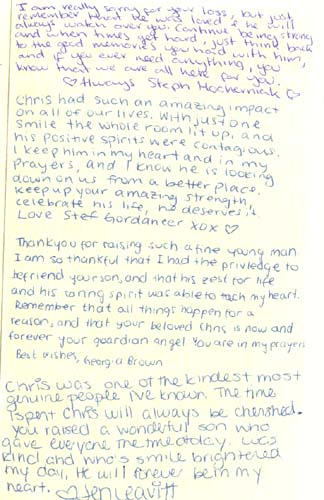 I am really sorry for your loss, but just
remember that he was loved & he will
always watch over you. Continue being strong
and when times get hard, just think back
to the good memories you had with him,
and if you ever need anything, you
know that we are all here for you.
♡ Always Steph Mocherniak ♡
Chris had such an amazing impact
on all of our lives. With just one
smile the whole room lit up, and
his positive spirits were contagious.
I keep him in my heart and in my
prayers, and I know he is looking
down on us from a better place.
Keep up your amazing strength,
celebrate his life, he deserves it.
Love Stef Gordaneer xox ♡
Thankyou for raising such a fine young man
I am so thankful that I had the priviledge to
befriend your son, and that his zest for life
and his caring spirit was able to touch my heart.
Remember that all things happen for a
reason, and that your beloved Chris is now and
forever your guardian angel. You are in my prayers
Best wishes, Georgia Brown
Chris was one of the kindest most
genuine people I've known. The time
I spent Chris will always be cherished.
You raised a wonderful son who
gave everyone the time of day, was
kind and who's smile brightened
my day, He will forever be in my
heart. ♡ Jen Leavitt